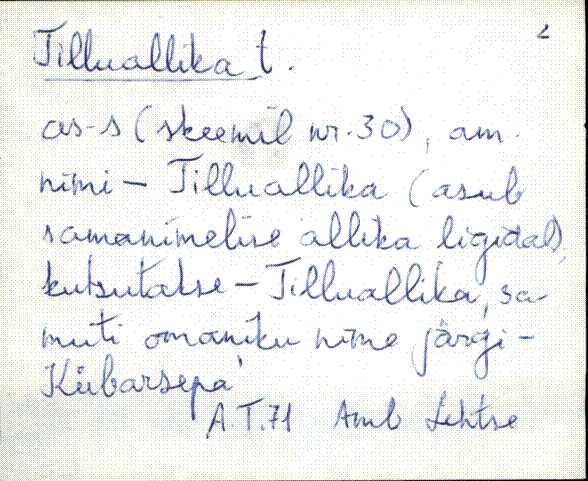 2
Tilluallika t.
as-s (skeemil nr. 30), am.
nimi – Tilluallika (asub
samanimelise allika ligidal),
kutsutakse – Tilluallika, sa-
muti omaniku nime järgi –
Kübarsepa'
A.T.71 Amb Lehtse